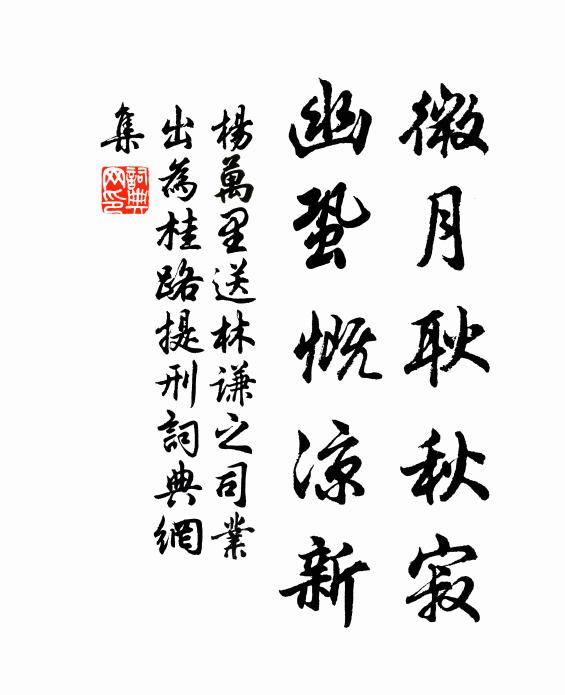 微月耿秋寂
幽蛩慨涼新
楊萬里送林謙之司業
出為桂路提刑詞典網
集
詞典
网印